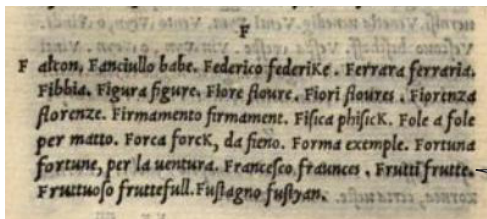 F
F alcon, Fanciullo babe. Federico federiKe. Ferrara ferraria.
Fibbia. Figura figure. Fiore floure. Fiori floures. Fiorenza
florenze. Firmamento firmament. Fiſica phiſicK. Fole a fole
per matto. Forca forcK, da fieno. Forma exemple. Fortuna
fortune, per la uentura. Franceſco fraunces. Frutti frutte.
Fruttuoſo fruttefull. Fuſtagno fuſtyan.